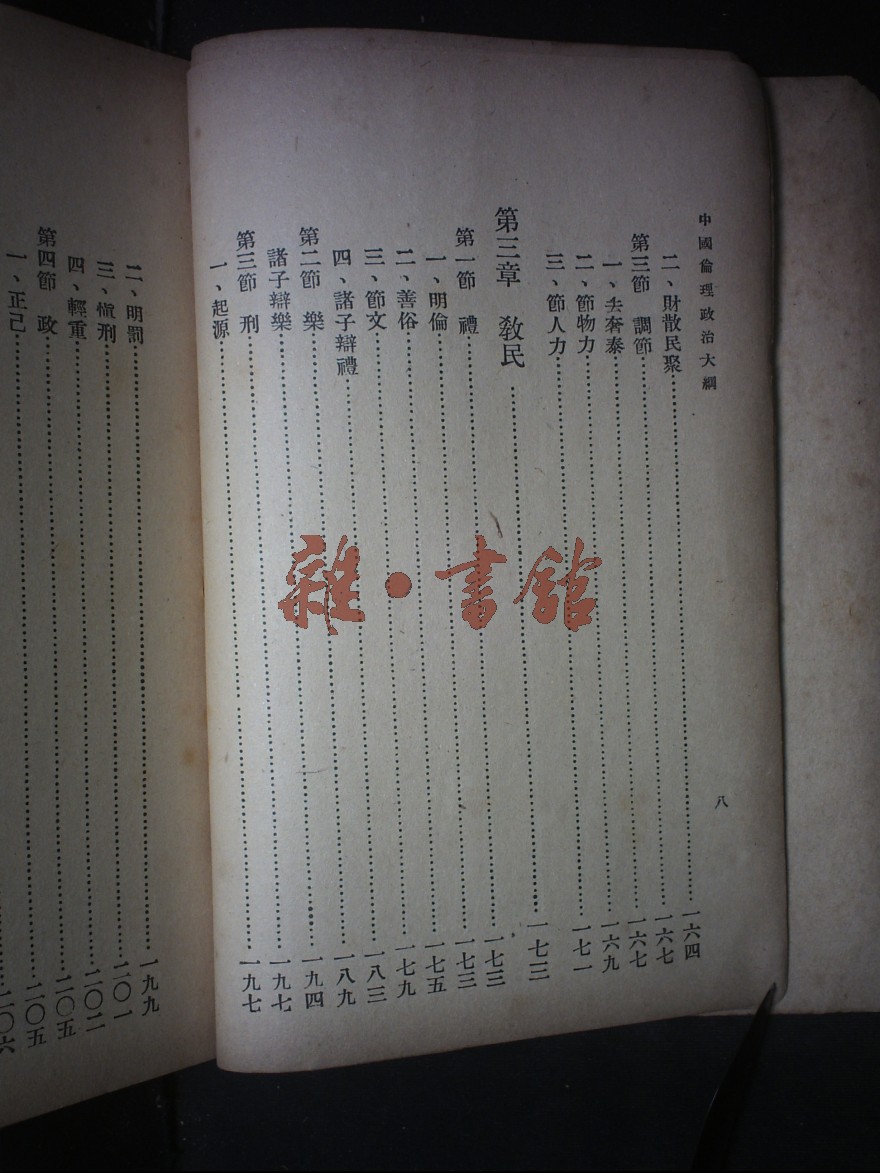 中國倫理政治大綱
八
二、財散民聚……一六四
第三節 調節……一六七
一、去奢泰……一六七
二、節物力……一六九
三、節人力……一七一
第三章 敎民……一七三
第一節 禮……一七三
一、明倫……一七三
二、善俗……一七五
三、節文……一七九
四、諸子辯禮……一八三
第二節 樂……一八九
諸子辯樂……一九四
第三節 刑……一九七
一、起源……一九七
二、明罰……一九九
三、愼刑……二〇一
四、輕重……二〇二
第四節 政……二〇五
一、正己……二〇五
二〇六
雜·書館